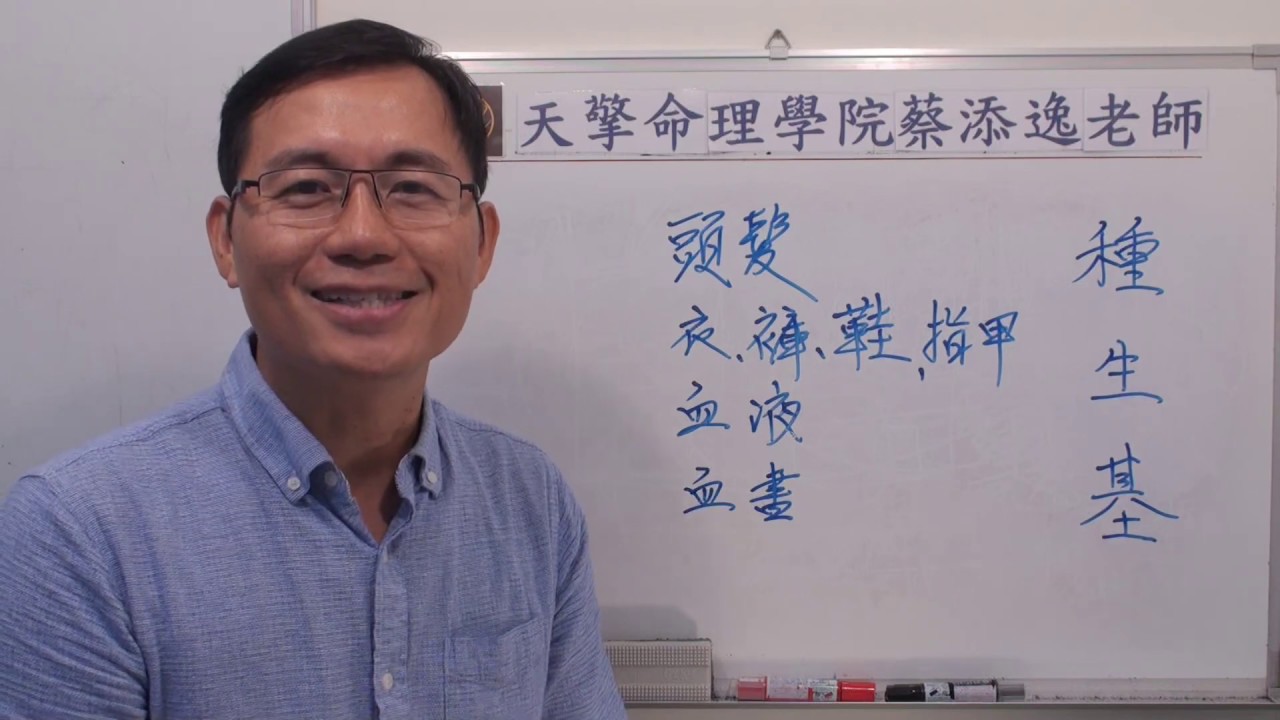 天擎命理學院蔡添逸老師
種生基
頭髮
衣、褲、鞋,指甲
血液
血書